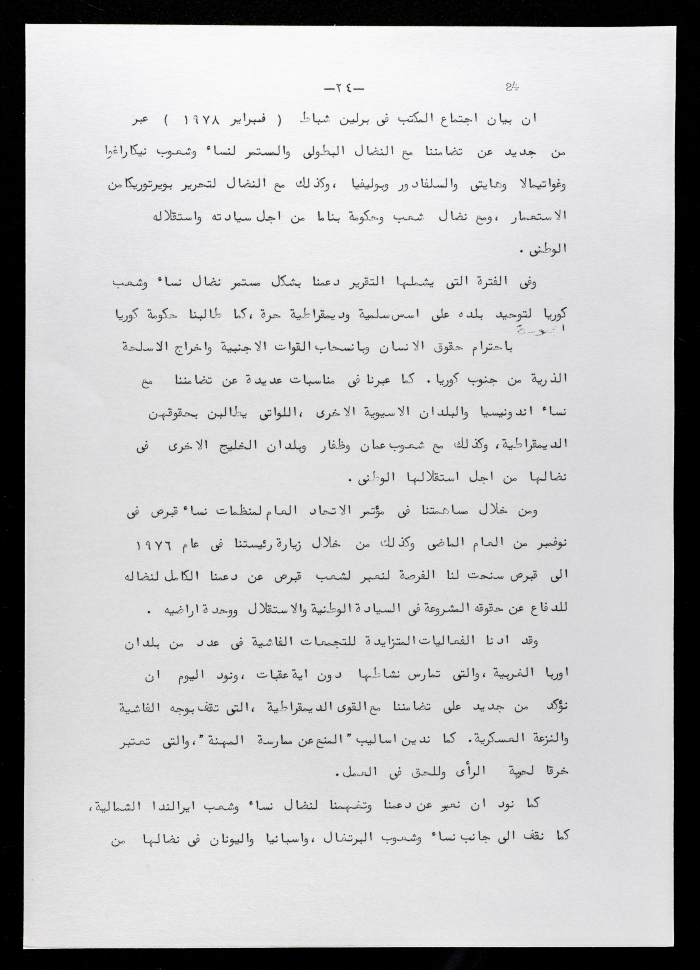 —٢٤—
24
ان بيان اجتماع المكتب فى برلين شباط ( فبراير ١٩٧٨ ) عبر
من جديد عن تضامننا مع النضال البطولى والمستمر لنساء وشعوب نيكاراغوا
وغواتيمالا وهايتى والسلفادور وبوليفيا ،وكذلك مع النضال لتحرير بويرتوريكامن
الاستعمار ،ومع نضال شعب وحكومة بناما من اجل سيادته واستقلاله
الوطنى .
وفى الفترة التى يشملها التقرير دعمنا بشكل مستمر نضال نساء وشعب
كوريا لتوحيد بلده على اسس سلمية وديمقراطية حرة ،كما طالبنا حكومة كوريا
باحترام حقوق الانسان وبانسحاب القوات الاجنبية واخراج الاسلحة
الذرية من جنوب كوريا. كما عبرنا فى مناسبات عديدة عن تضامننا مع
نساء اندونيسيا والبلدان الاسيوية الاخرى ،اللواتى يطالبن بحقوقهن
الديمقراطية، وكذلك مع شعوب عمان وظفار وبلدان الخليج الاخرى فى
نضالها من اجل استقلالها الوطنى .
ومن خلال مساهمتنا فى مؤتمر الاتحاد العام لمنظمات نساء قبرص فى
نوفمبر من العام الماضى وكذلك من خلال زيارة رئيستنا فى عام ١٩٧٦
الى قبرص سنحت لنا الفرصة لنعبر لشعب قبرص عن دعمنا الكامل لنضاله
للدفاع عن حقوقه المشروعة فى السيادة الوطنية والاستقلال ووحدة اراضيه .
وقد ادنا الفعاليات المتزايدة للتجمعات الفاشية فى عدد من بلدان
اوربا الغربية ،والتى تمارس نشاطها دون اية عقبات ،ونود اليوم ان
نؤكد من جديد على تضامننا مع القوى الديمقراطية ،التى تقف بوجه الفاشية
والنزعة العسكرية. كما ندين اساليب "المنع عن ممارسة المهنة"، والتى تعتبر
خرقا لحرية الرأى وللحق فى العمل.
كما نود ان نعبر عن دعمنا وتفهمنا لنضال نساء وشعب ايرالندا الشمالية،
كما نقف الى جانب نساء وشعوب البرتغال ،واسبانيا واليونان فى نضالها من